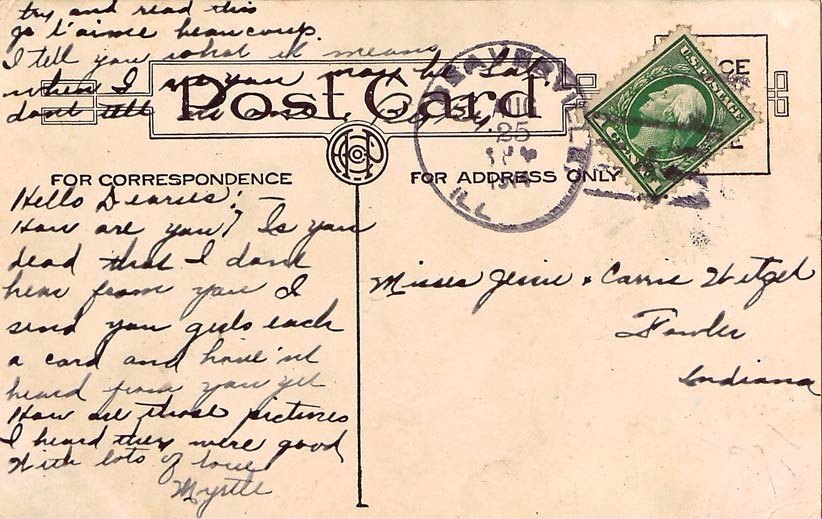 try and read this
go t'aime beaucoup.
I tell you what it means
when I see you may be Sat.
dont tell
Post Card
BEAVERVILLE
AUG
25
ILL
U.S. POSTAGE
1 CENT 1
FOR CORRESPONDENCE
FOR ADDRESS ONLY
Hello Dearies:
How are you? Is you
dead that I dont
hear from you I
send you girls each
a card and have'nt
heard from you yet
How are those pictures
I heard they were good
With lots of love
Myrtle
Misses Jessie & Carrie Wetzel
Fowler
Indiana